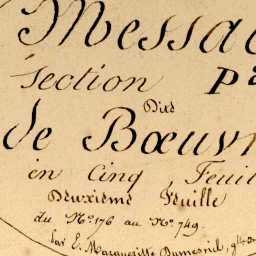 Messac
Section P
Dite
de Bœuvr
en Cinq Feuil
Deuxième Feuille
du N.º 176 au N.º 749.
Par E. Marguerille Dumesnil,